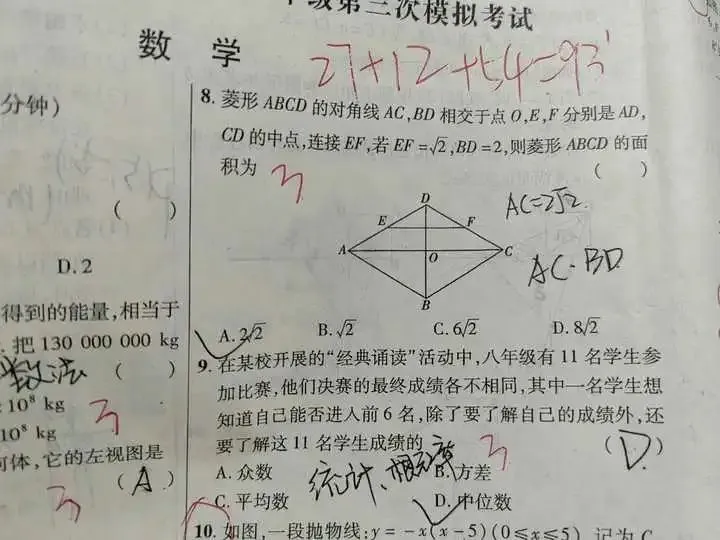 级第三次模拟考试
数 学
27+12+54=93
分钟)
( )
D.2
得到的能量,相当于
把 130 000 000 kg
数法 ( )
10⁸ kg
3
10⁸ kg
何体,它的左视图是
3 (A)
8. 菱形 ABCD 的对角线 AC,BD 相交于点 O,E,F 分别是 AD,
CD 的中点,连接 EF,若 EF=√2,BD=2,则菱形 ABCD 的面
积为 3 ( )
D
E F
A O C
B
AC=2√2
AC·BD
A.2√2 B.√2 C.6√2 D.8√2
9. 在某校开展的“经典诵读”活动中,八年级有 11 名学生参
加比赛,他们决赛的最终成绩各不相同,其中一名学生想
知道自己能否进入前 6 名,除了要了解自己的成绩外,还
要了解这 11 名学生成绩的 3 (D)
A.众数 B.方差
统计、概率
C.平均数 D.中位数
10. 如图,一段抛物线:y=-x(x-5)(0≤x≤5),记为 C